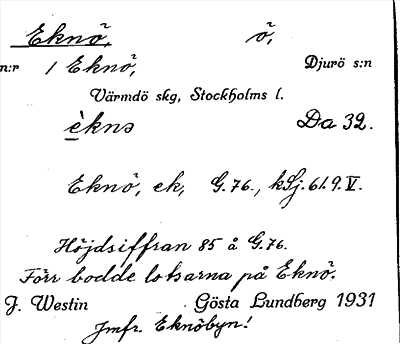 Eknö, ö,
n:r 1 Eknö, Djurö s:n
Värmdö skg, Stockholms l.
èknə Da 32.
Eknö, ek, G.76., kSj. 61.9.V.
Höjdsiffran 85 å G.76.
Förr bodde lotsarna på Eknö.
J. Westin Gösta Lundberg 1931
Jmfr. Eknöbyn!